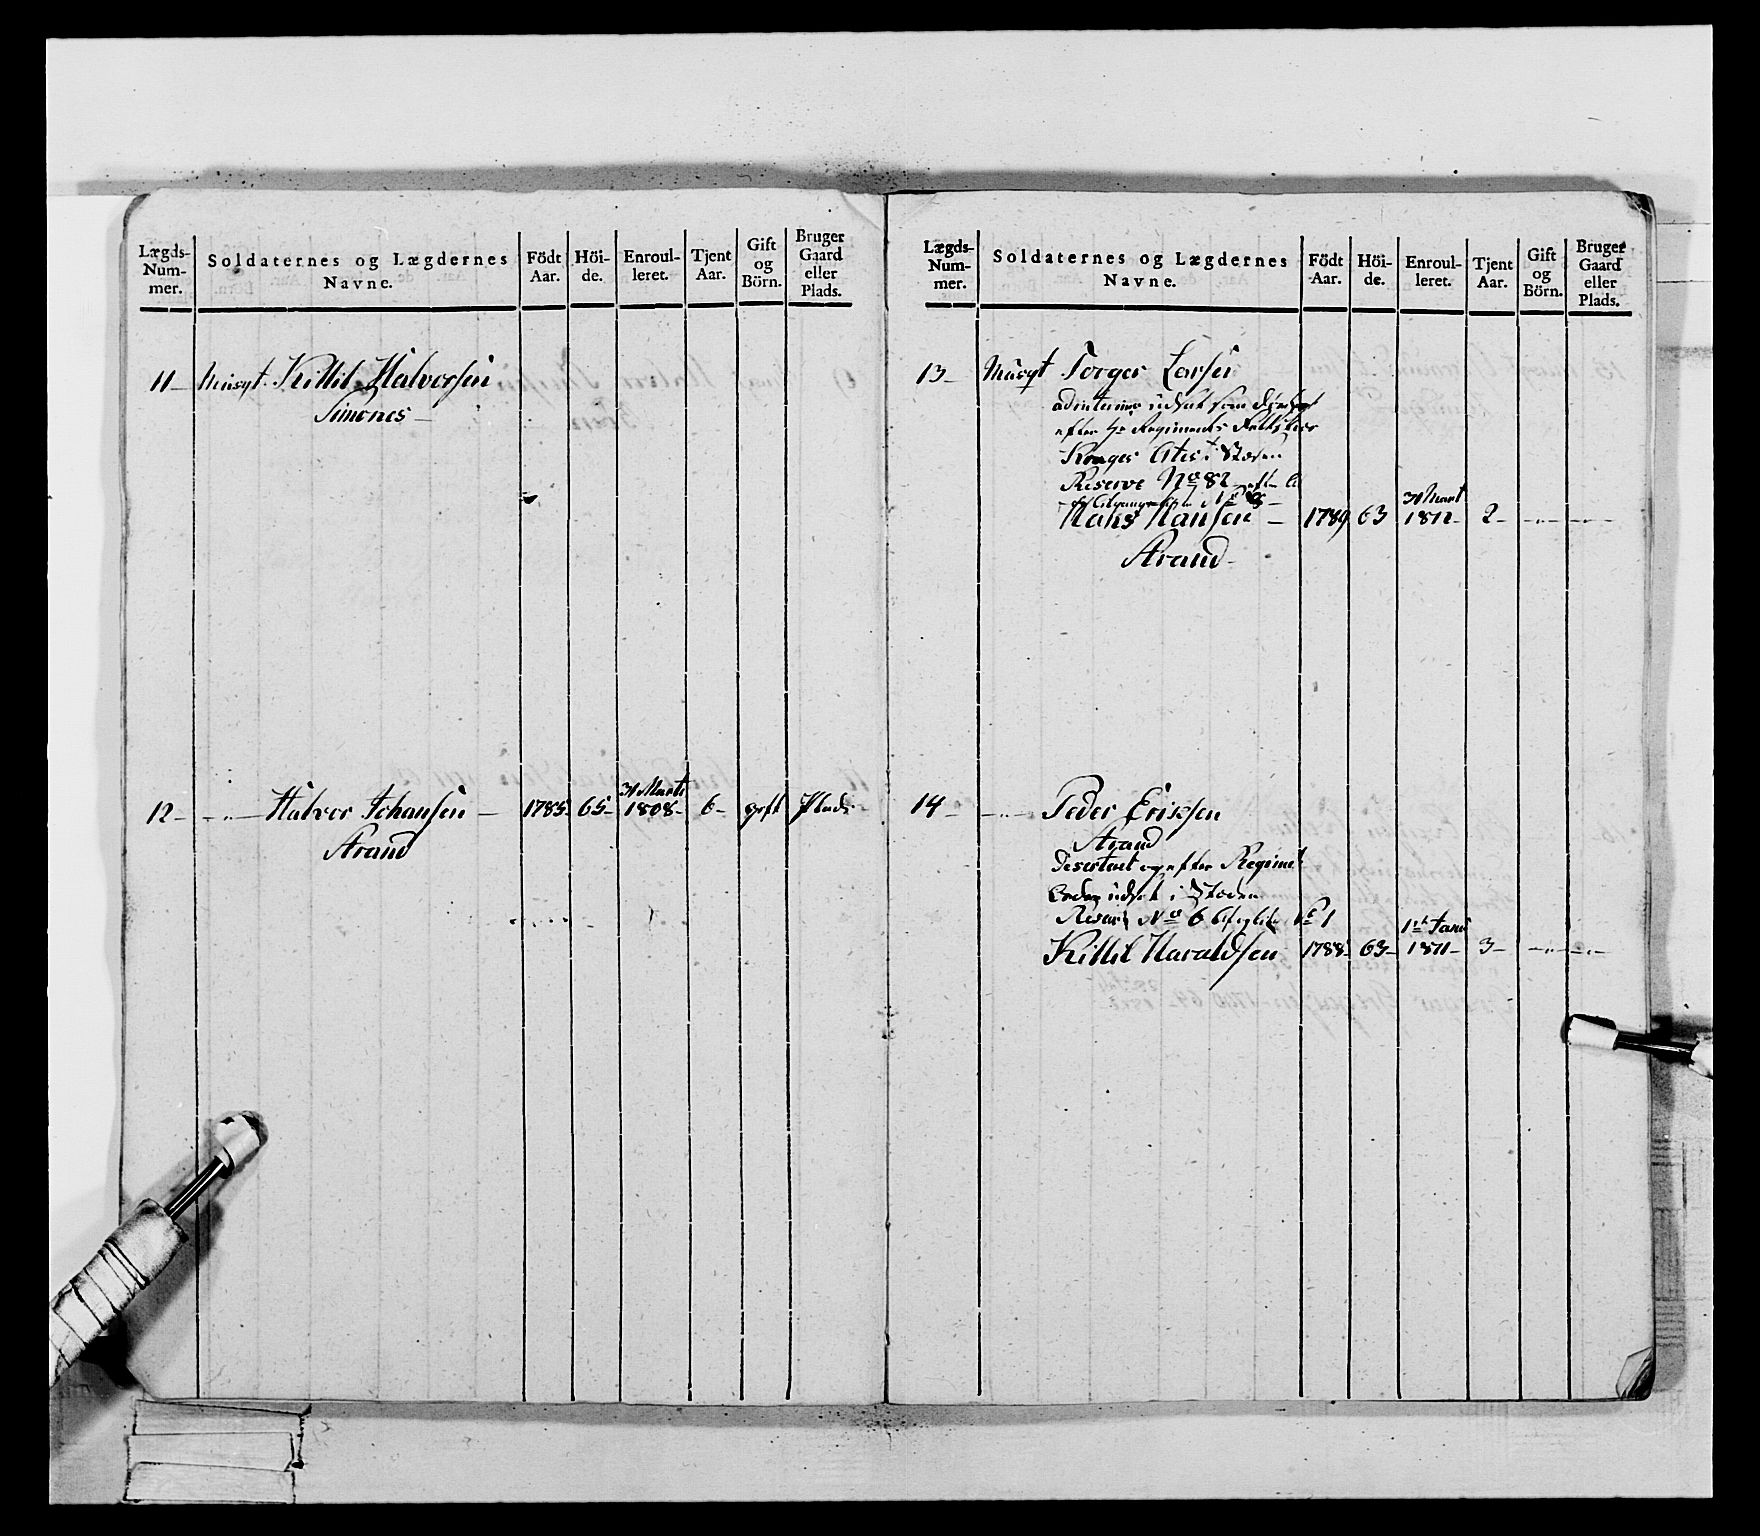 Lægds-Num-mer. Soldaternes og Lægdernes Navne. Födt Aar. Höi-de. Enroul-leret. Tjent Aar. Gift og Börn. Bruger Gaard eller Plads.
11 – Musqt. Kittil Halvorsen
Simones –
12 – – " – Halvor Johansen – 1785 65 – 31 Marti 1808 – 6 – gift Plads
Strand
Lægds-Num-mer. Soldaternes og Lægdernes Navne. Födt Aar. Höi-de. Enroul-leret. Tjent Aar. Gift og Börn. Bruger Gaard eller Plads.
13 – Musqt Torger Larsen
ad interims udsat som
efter Regiments
i Stoden
Reserve No 82
Hans Hansen – 1789 63 31 Mart 1812 – 2 – – " – – " –
Strand –
14 – – " – Peder Eriksen
Strand
Deserteret og efter Regimet
Ordre udsat i Stoden
Reserve No 6 No 1
Kittil Haraldsen 1788 – 63 – 1ste Janu 1811 – 3 – – " – – " –